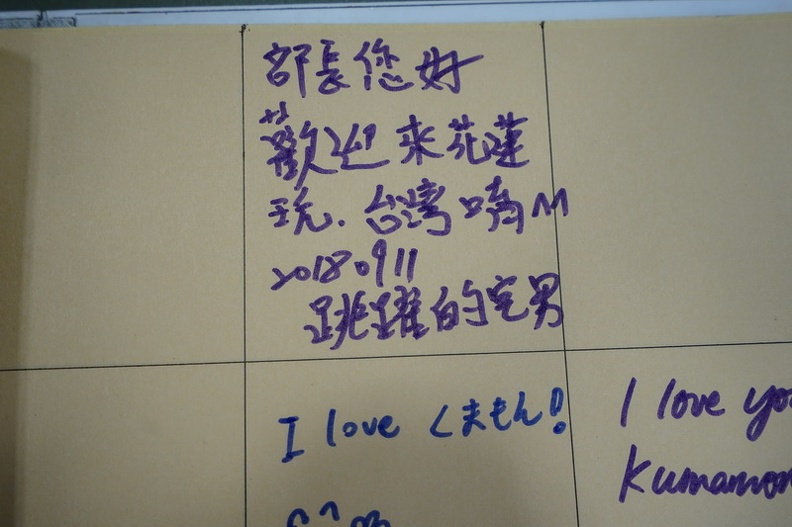 部長您好
歡迎来花蓮
玩.台灣嗨M
20180911
跳躍的宅男
I love くまモン!
I love you
Kumamon